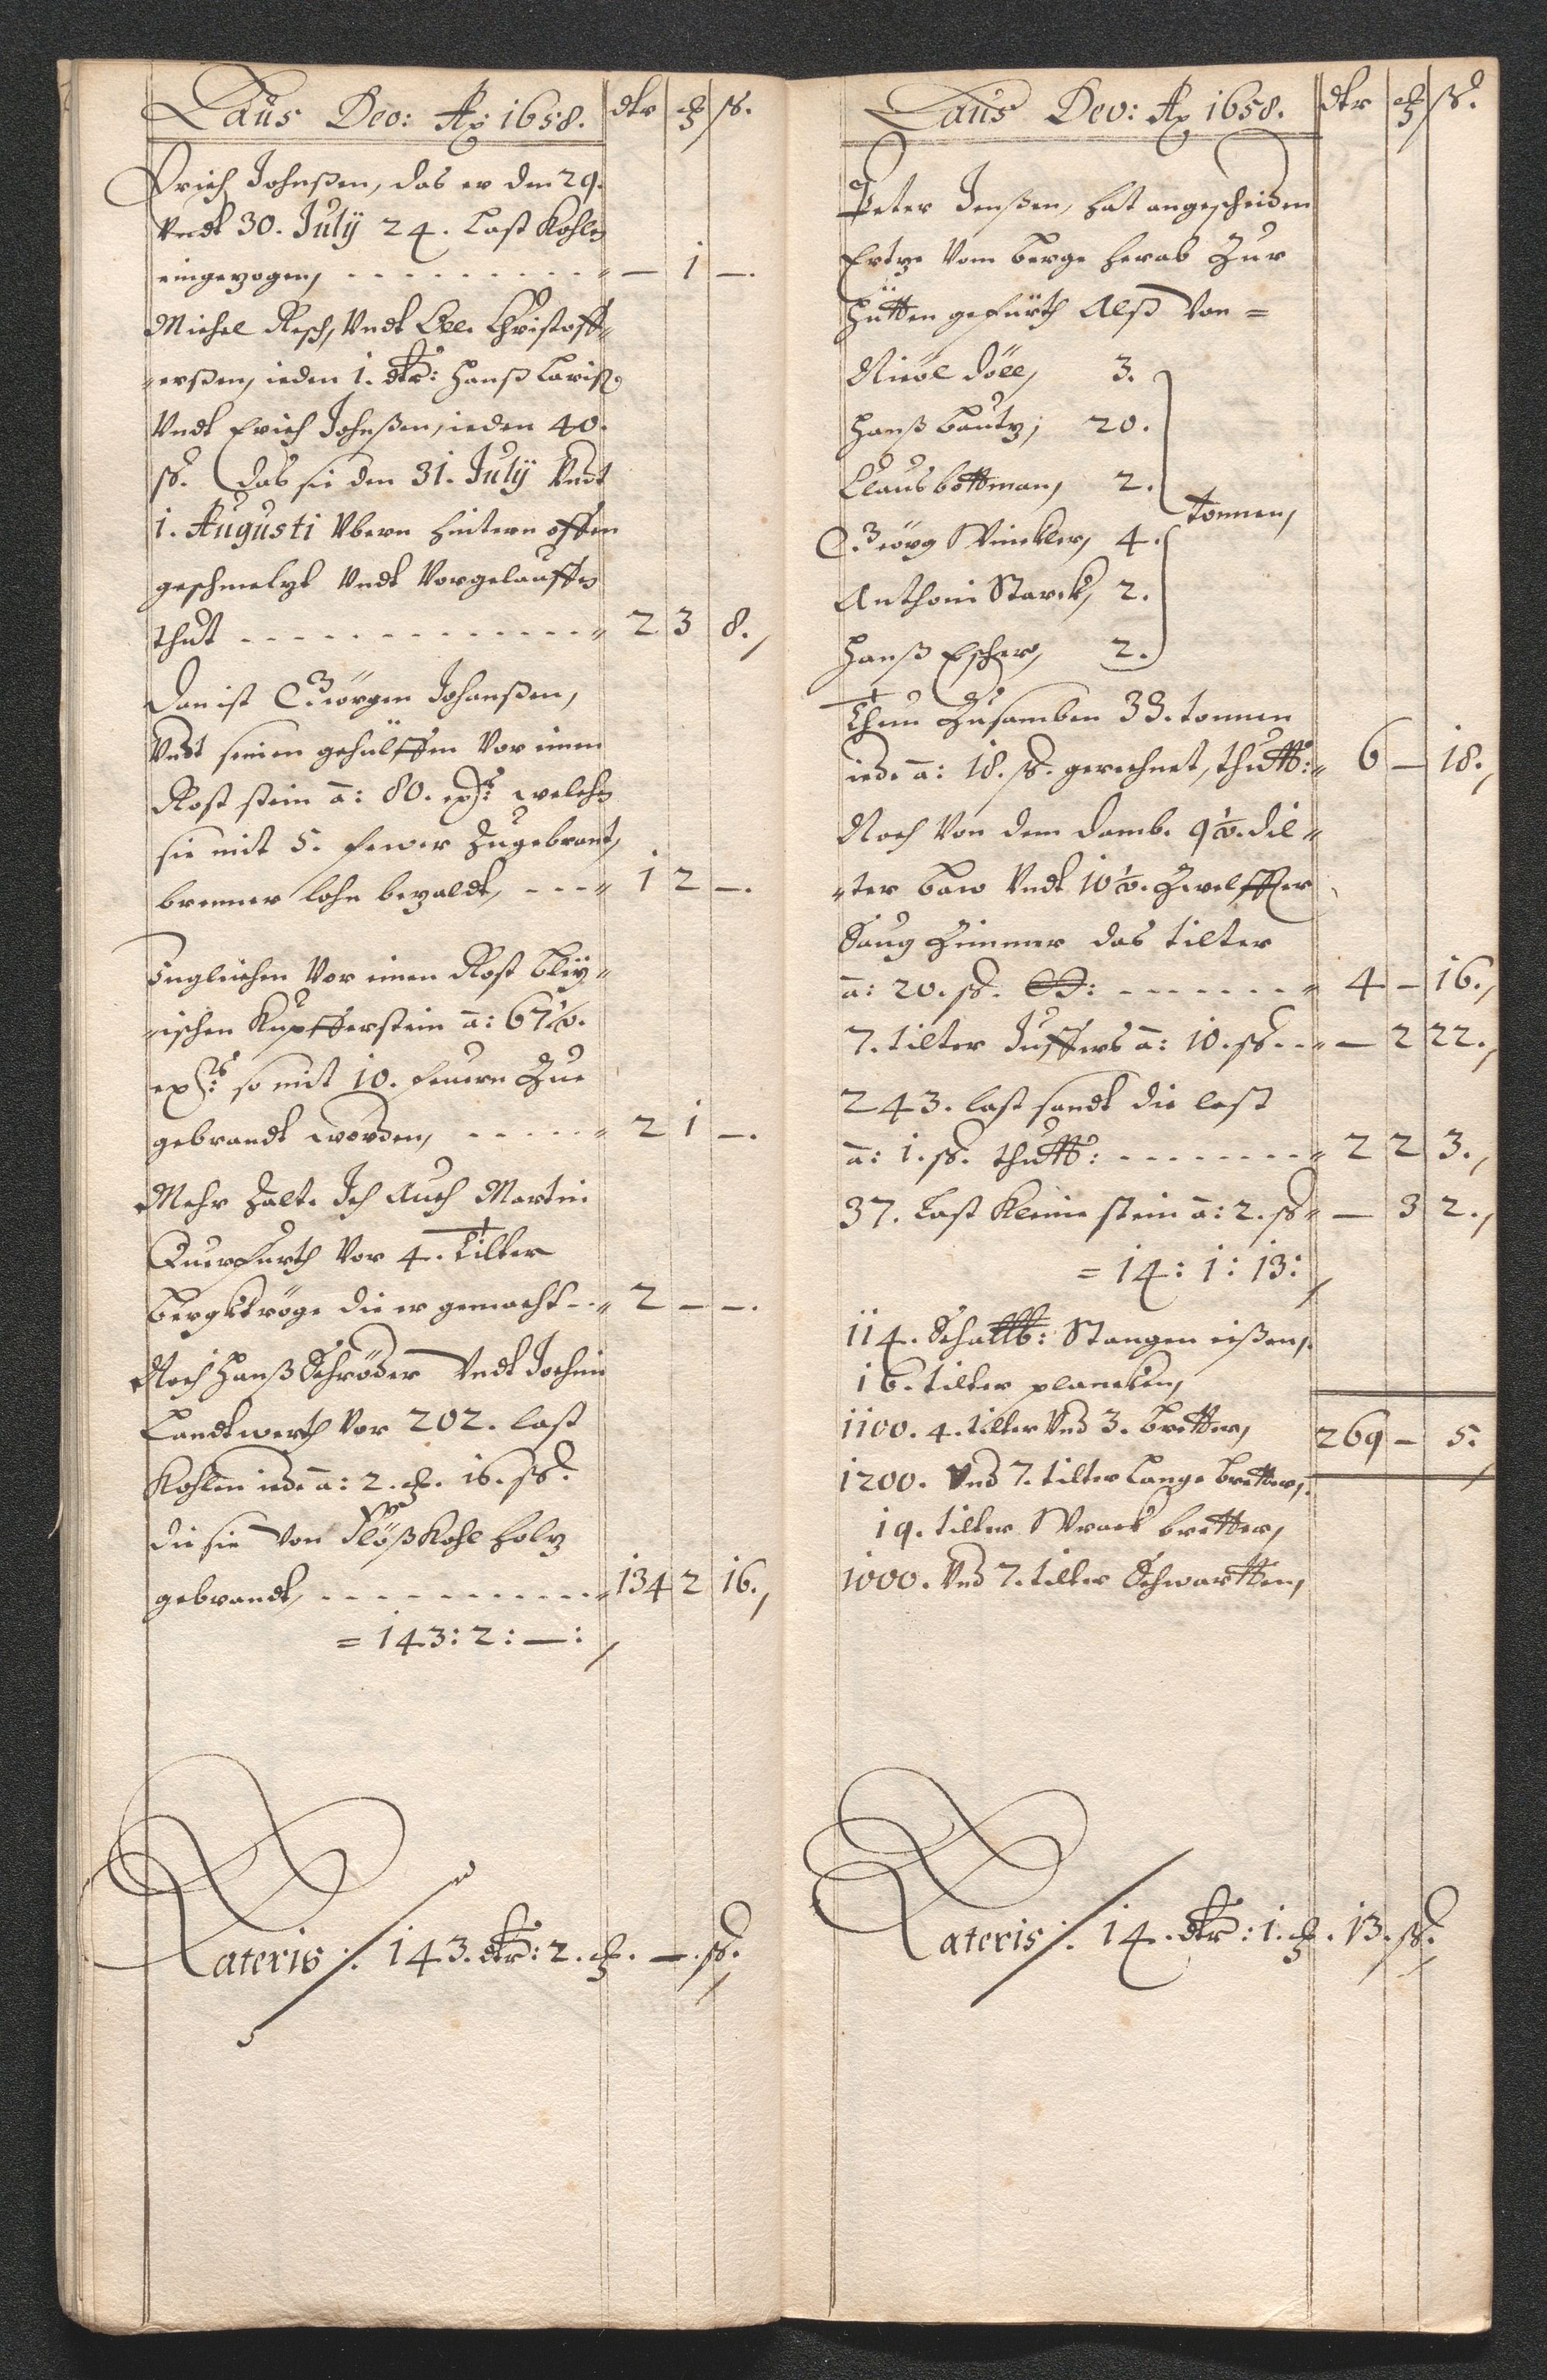 Laus Deo: Ao 1658. dlr ß.
Erich Johnßen, das er den 29.
Vndt 30. Julÿ 24. Last Kohlen
eingezogen, — 1 —.
Michel Resch, Vndt Oll. Christoff-
-erßen, ieden 1. dlr: Hanß Lariß.
Vndt Erich Johnßen, ieden 40.
ß. das sie den 31. Julÿ Vndt
1. Augusti Vbern hintern offen
geschmeltzt Vndt Vorgelauffen
thut 2 3 8.
Dan ist Geörgen Johanßen,
Vndt seinen gehülffen Vor einen
Rost stein a: 80. welchen
sie mit 5. fewer Zugebrant,
brenner lohn bezaldt, 1 2 —.
Ingleichen Vor einen Rost bleÿ-
-ischen Kupfferstein a: 67½.
so mit 10. feuern Zue
gebrandt worden, 2 1 —.
Mehr Zalt. Ich Auch Martin
Querfurth Vor 4. Tilter
bergktröge die er gemacht 2 — —.
Noch Hanß Schröder Vndt Jochim
Landtwerth Vor 202. last
Kohlen iede a: 2. 16. ß.
die sie Von Flößkohl holtz
gebrandt, 134 2 16.
= 143: 2: —:
Lateris: 143. dlr: 2. —. ß.
Laus Deo: Ao 1658. dlr ß.
Peter Jenßen, hat angescheiden
Ertze Vom berge herab Zur
Hütten gefürth Alß Von =
Nicol Döll, 3.
Hanß bautz, 20.
Claus bottman, 2.
Tonnen,
Geörg Winckler, 4.
Anthoni Starck, 2.
Hanß Escher, 2.
Thun Zusamben 33. tonnen
iede a: 18. ß. gerechnet, thutt: 6 — 18.
Noch Von dem damb. 9½. dil-
-ter baw Vndt 10½. Zwelffer
Saug Zimmer das tilter
a: 20. ß. 4 — 16.
7. tilter Juffers a: 10. ß. — 2 22.
243. last sandt die last
a: 1. ß. thutt: 2 2 3.
37. Last Kleine stein a: 2. ß — 3 2.
= 14: 1: 13:
114. Schallb: Stangen eißen,
16. tilter plancken,
1100. 4. tilter Vnd 3. bretter,
269 — 5.
1200. Vnd 7. tilter Lange bretter,
19. tilter Wrack bretter,
1000. Vnd 7. tilter Schwartten,
Lateris: 14. dlr: 1. 13. ß.